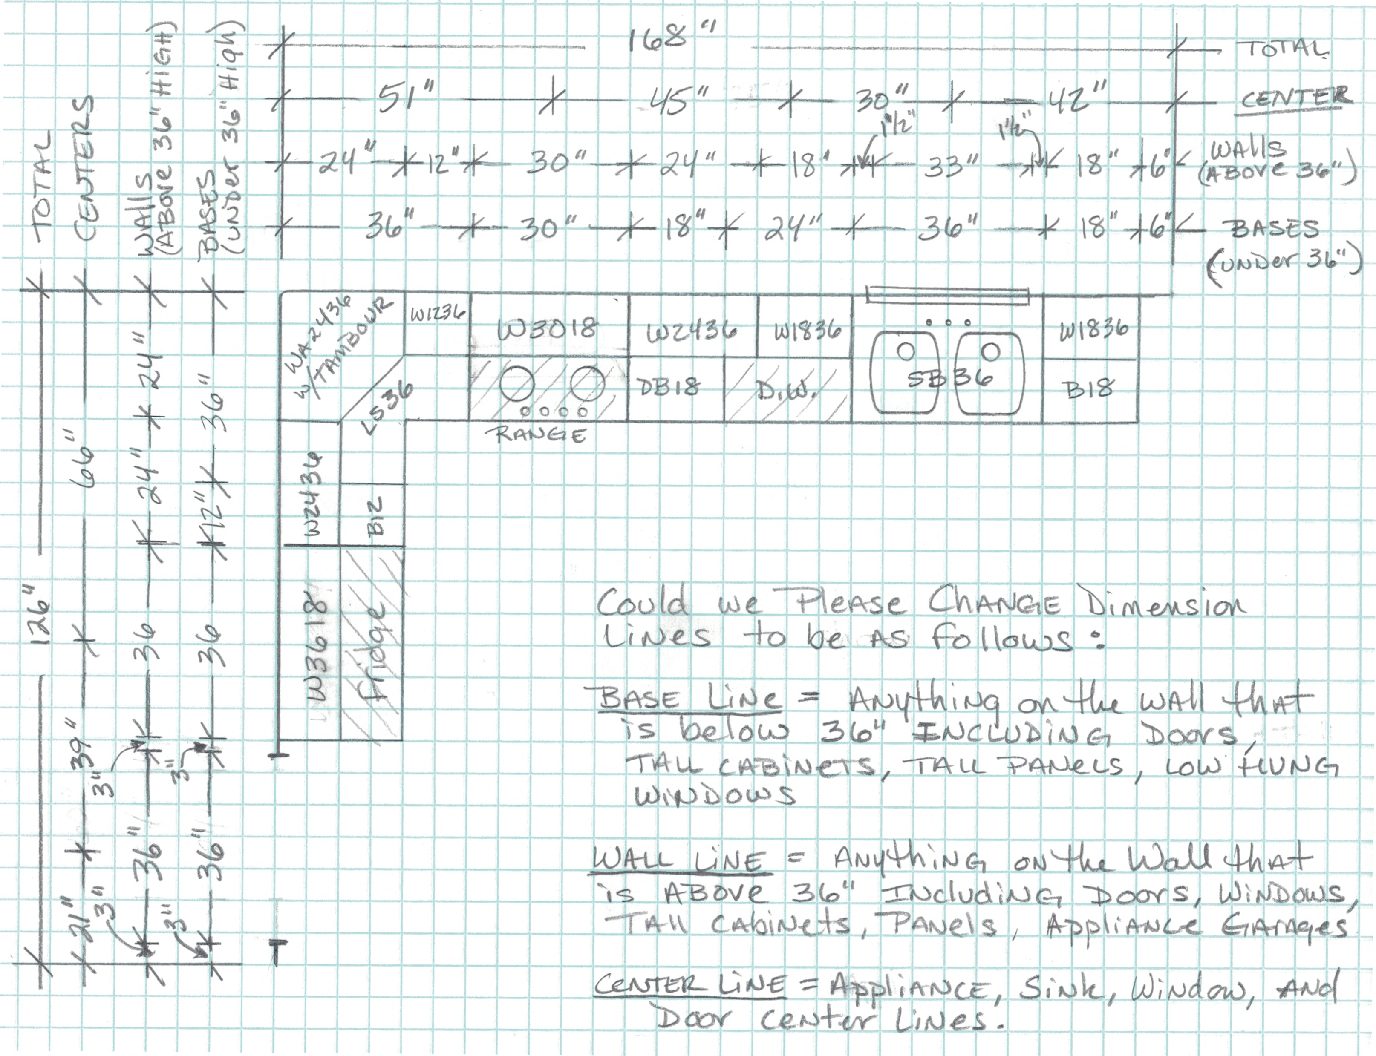 168"
TOTAL
51" 45" 30" 42" CENTER
1 1/2" 1 1/2"
24" 12" 30" 24" 18" 33" 18" 6" WALLS
(ABOVE 36")
36" 30" 18" 24" 36" 18" 6" BASES
(UNDER 36")
TOTAL
CENTERS
WALLS
(ABOVE 36" HIGH)
BASES
(UNDER 36" High)
126"
66" 39" 21"
24" 24" 36 3" 36" 3"
36" 12" 36 3" 36" 3"
WA2436
W/TAMBOUR
W1236
W3018
W2436
W1836
W1836
LS36
DB18
D.W.
SB36
B18
RANGE
W2436
B12
W3618
fridge
Could we Please CHANGE Dimension
Lines to be AS follows:
BASE LiNe = Anything on the WAll that
is below 36" INCLUDiNG DOORS,
TALL CABINETS, TALL PANELS, LOW HUNG
WINDOWS
WALL LiNE = Anything on the Wall that
is ABOVE 36" Including Doors, WiNdowS,
TAll CABiNETS, PANELS, AppliANCE GARAges
CENTER LiNE = AppliANCE, Sink, Window, AND
Door center Lines.